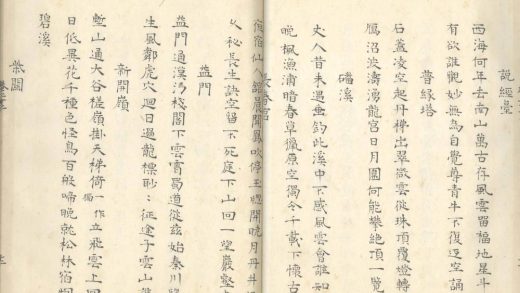 說經臺
西海何年去南山萬古存風雲留福地星斗
有欲誰觀妙無為自覺尊青牛不復返空誦
普緣塔
石蓋凌空起丹梯出翠微雲從珠頂覆燈轉
雁沼波濤湧龍宮日月圍何能攀絕頂一覽
磻溪
丈人昔未遇垂釣此溪中不感風雲會誰知
晚楓漁浦暗春草獵原空獨令千載下懷古
宿仙人館晨開鳳吹停玉開曉月丹井
火秘長生訣空留不死庭下山回一望巖壑
益門
益門通漢沔棧閣下雲霄蜀道從茲始秦川
生風鄰虎穴迴日過龍標眇〻征途子雲山
新開嶺
山通大谷槎嶺掛天梯倚一作獨立飛雲上回
日低異花千種色怪鳥百般啼晚就松林宿
碧溪
柴關